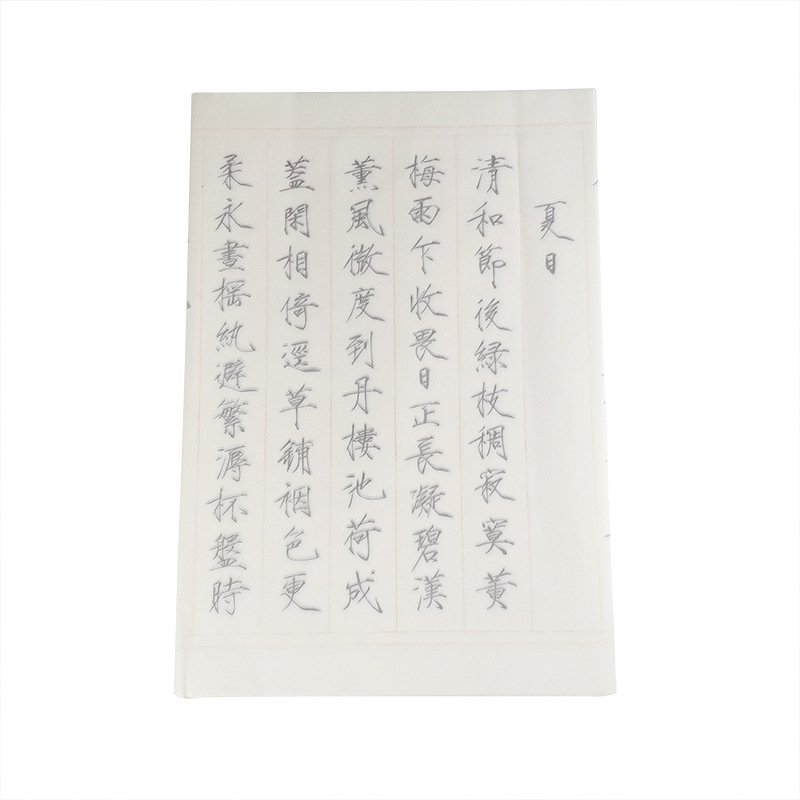 夏日
清和節後緑枝稠寂寞黄
梅雨乍收畏日正長凝碧漢
薰風微度到丹樓池荷成
蓋閑相倚逕草鋪裀色更
柔永晝搖紈避繁溽杯盤時